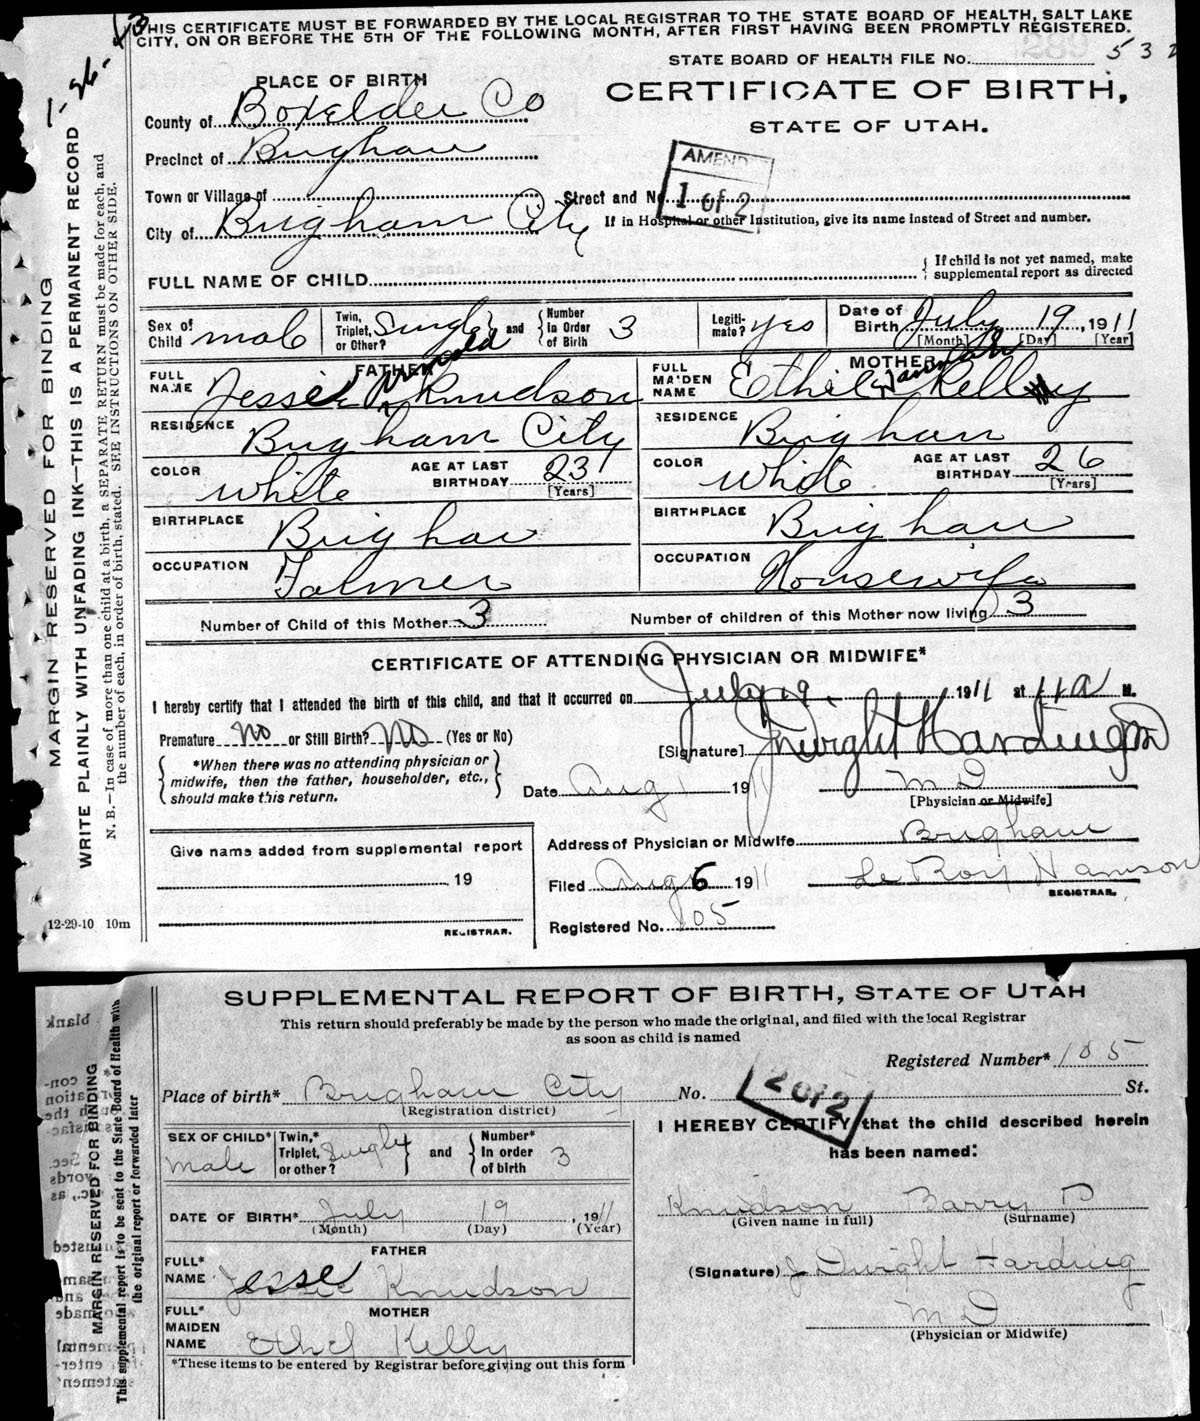 THIS CERTIFICATE MUST BE FORWARDED BY THE LOCAL REGISTRAR TO THE STATE BOARD OF HEALTH, SALT LAKE
CITY, ON OR BEFORE THE 5TH OF THE FOLLOWING MONTH, AFTER FIRST HAVING BEEN PROMPTLY REGISTERED.
STATE BOARD OF HEALTH FILE No. 532
PLACE OF BIRTH
CERTIFICATE OF BIRTH,
STATE OF UTAH.
County of Boxelder Co
Precinct of Brigham
AMEND
1 of 2
Town or Village of
Street and No
City of Brigham City
If in Hospital or other Institution, give its name instead of Street and number.
FULL NAME OF CHILD
If child is not yet named, make
supplemental report as directed
Sex of Child male
Twin, Triplet, or Other? Single and Number In Order of Birth 3
Legitimate? yes
Date of Birth July 19, 1911
[Month] [Day] [Year]
FATHER
MOTHER
FULL NAME Jesse Arnold Knudson
FULL MAIDEN NAME Ethel Hannah Kelly
RESIDENCE Brigham City
RESIDENCE Brigham
COLOR white AGE AT LAST BIRTHDAY 23 [Years]
COLOR white AGE AT LAST BIRTHDAY 26 [Years]
BIRTHPLACE Brigham
BIRTHPLACE Brigham
OCCUPATION Farmer
OCCUPATION Housewife
Number of Child of this Mother 3
Number of children of this Mother now living 3
CERTIFICATE OF ATTENDING PHYSICIAN OR MIDWIFE*
I hereby certify that I attended the birth of this child, and that it occurred on July 19, 1911 at 11 a M.
Premature No or Still Birth? No (Yes or No)
[Signature] J Dwight Harding MD
*When there was no attending physician or
midwife, then the father, householder, etc.,
should make this return.
Date Aug 1 1911
M D
[Physician or Midwife]
Give name added from supplemental report
19
REGISTRAR.
Address of Physician or Midwife Brigham
Filed Aug 6 1911
Le Roy Hamson
REGISTRAR.
Registered No. 105
12-29-10 10m
MARGIN RESERVED FOR BINDING
WRITE PLAINLY WITH UNFADING INK—THIS IS A PERMANENT RECORD
N. B.—In case of more than one child at a birth, a SEPARATE RETURN must be made for each, and
the number of each, in order of birth, stated. SEE INSTRUCTIONS ON OTHER SIDE.
SUPPLEMENTAL REPORT OF BIRTH, STATE OF UTAH
This return should preferably be made by the person who made the original, and filed with the local Registrar
as soon as child is named
Registered Number* 105
Place of birth* Brigham City No. St.
(Registration district)
2 of 2
SEX OF CHILD* Male
Twin,* Triplet, or other? Single and Number* In order of birth 3
I HEREBY CERTIFY that the child described herein
has been named:
DATE OF BIRTH* July 19, 1911
(Month) (Day) (Year)
Knudson Barry D
(Given name in full) (Surname)
FATHER
FULL* NAME Jesse Knudson
(Signature) J Dwight Harding
MOTHER
FULL* MAIDEN NAME Ethel Kelly
M D
(Physician or Midwife)
*These items to be entered by Registrar before giving out this form
MARGIN RESERVED FOR BINDING
This supplemental report is to be sent to the State Board of Health with
the original report or forwarded later